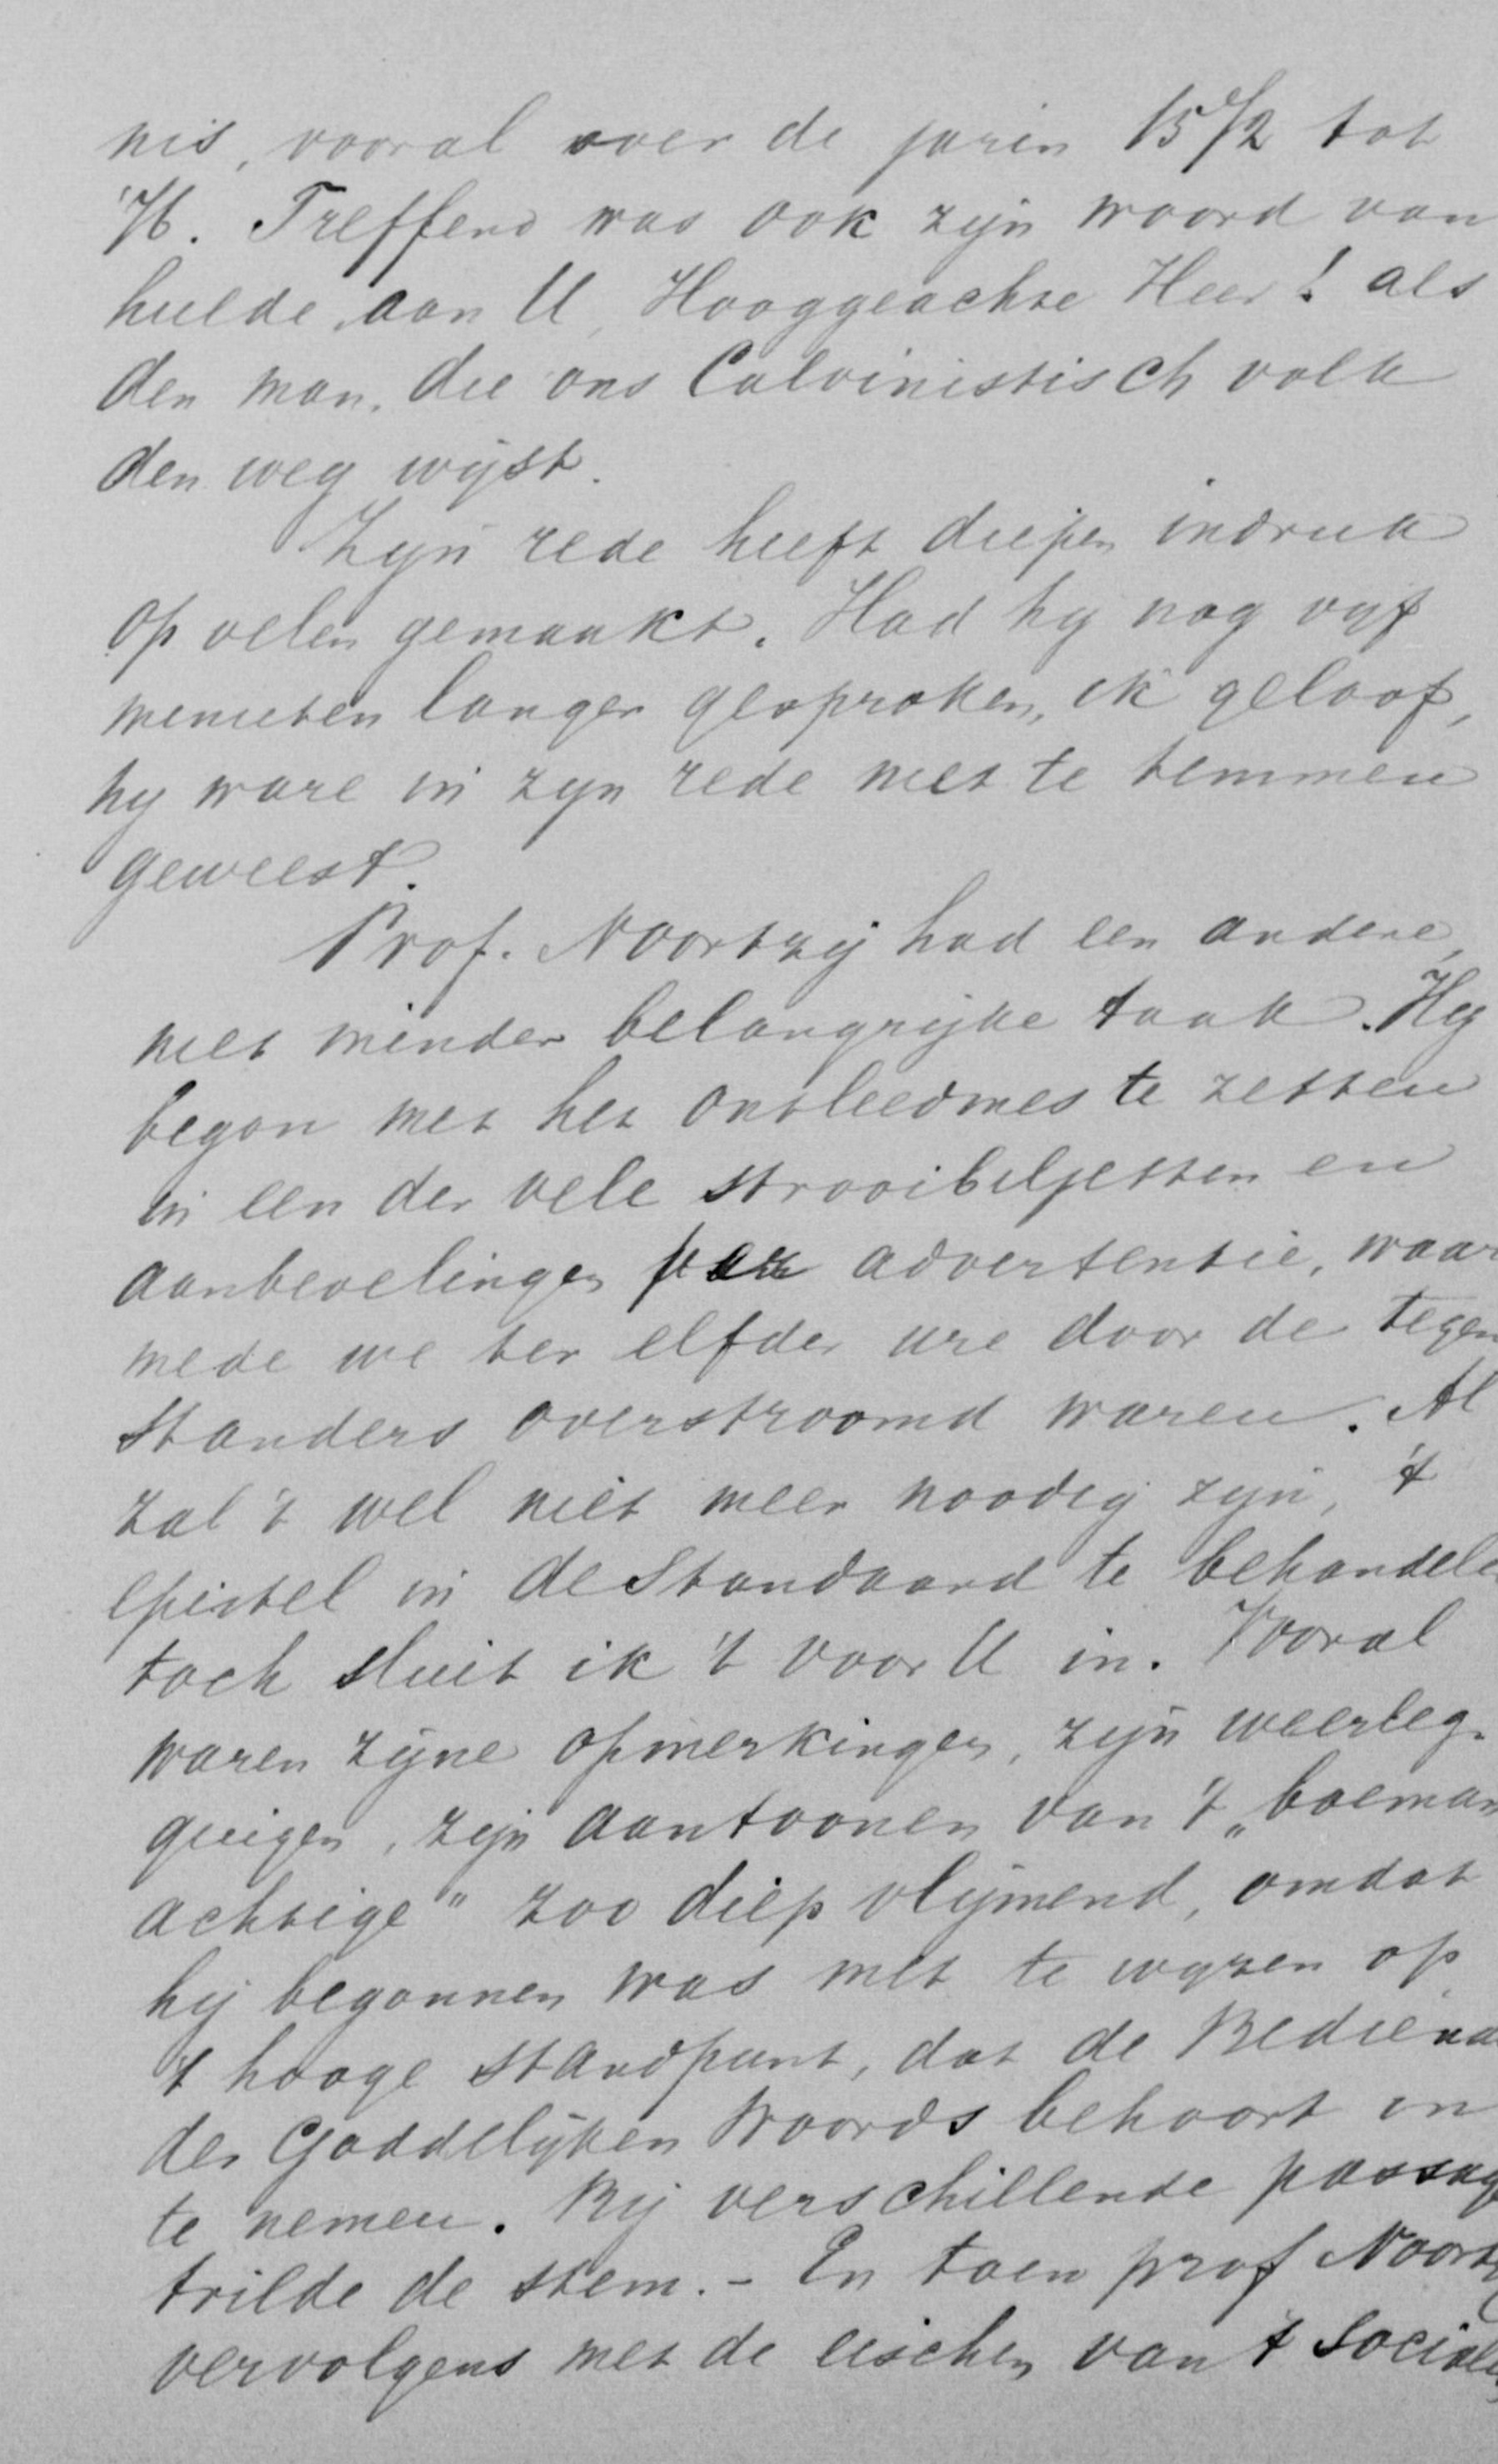 nis, vooral over de jaren 1572 tot
'76. Treffend was ook zijn woord van
hulde, aan U, Hooggeachte Heer! als
den man, die ons Calvinistisch volk
den weg wijst.
Zijn rede heeft diepen indruk
op velen gemaakt. Had hij nog vijf
menuten langer gesproken, ik geloof,
hij ware in zijn rede niet te temmen
geweest.
Prof. Noortzij had een andere,
niet minder belangrijke taak. Hij
begon met het ontleedmes te zetten
in een der vele strooibiljetten en
aanbevelingen per advertentie, waar
mede we ter elfder ure door de tegen
standers overstroomd waren. Al
zal 't wel niet meer noodig zijn, 't
epistel in de Standaard te behandelen
toch sluit ik 't voor U in. Vooral
waren zijne opmerkingen, zijn weerleg-
gingen, zijn aantoonen van 't „boeman
achtige" zoo diep vlijmend, omdat
hij begonnen was met te wijzen op
't hooge standpunt, dat de Bediena
des Goddelijken Woords behoort in
te nemen. Bij verschillende passag
trilde de stem. - En toen prof Noortz
vervolgens met de eischen van 't Sociali